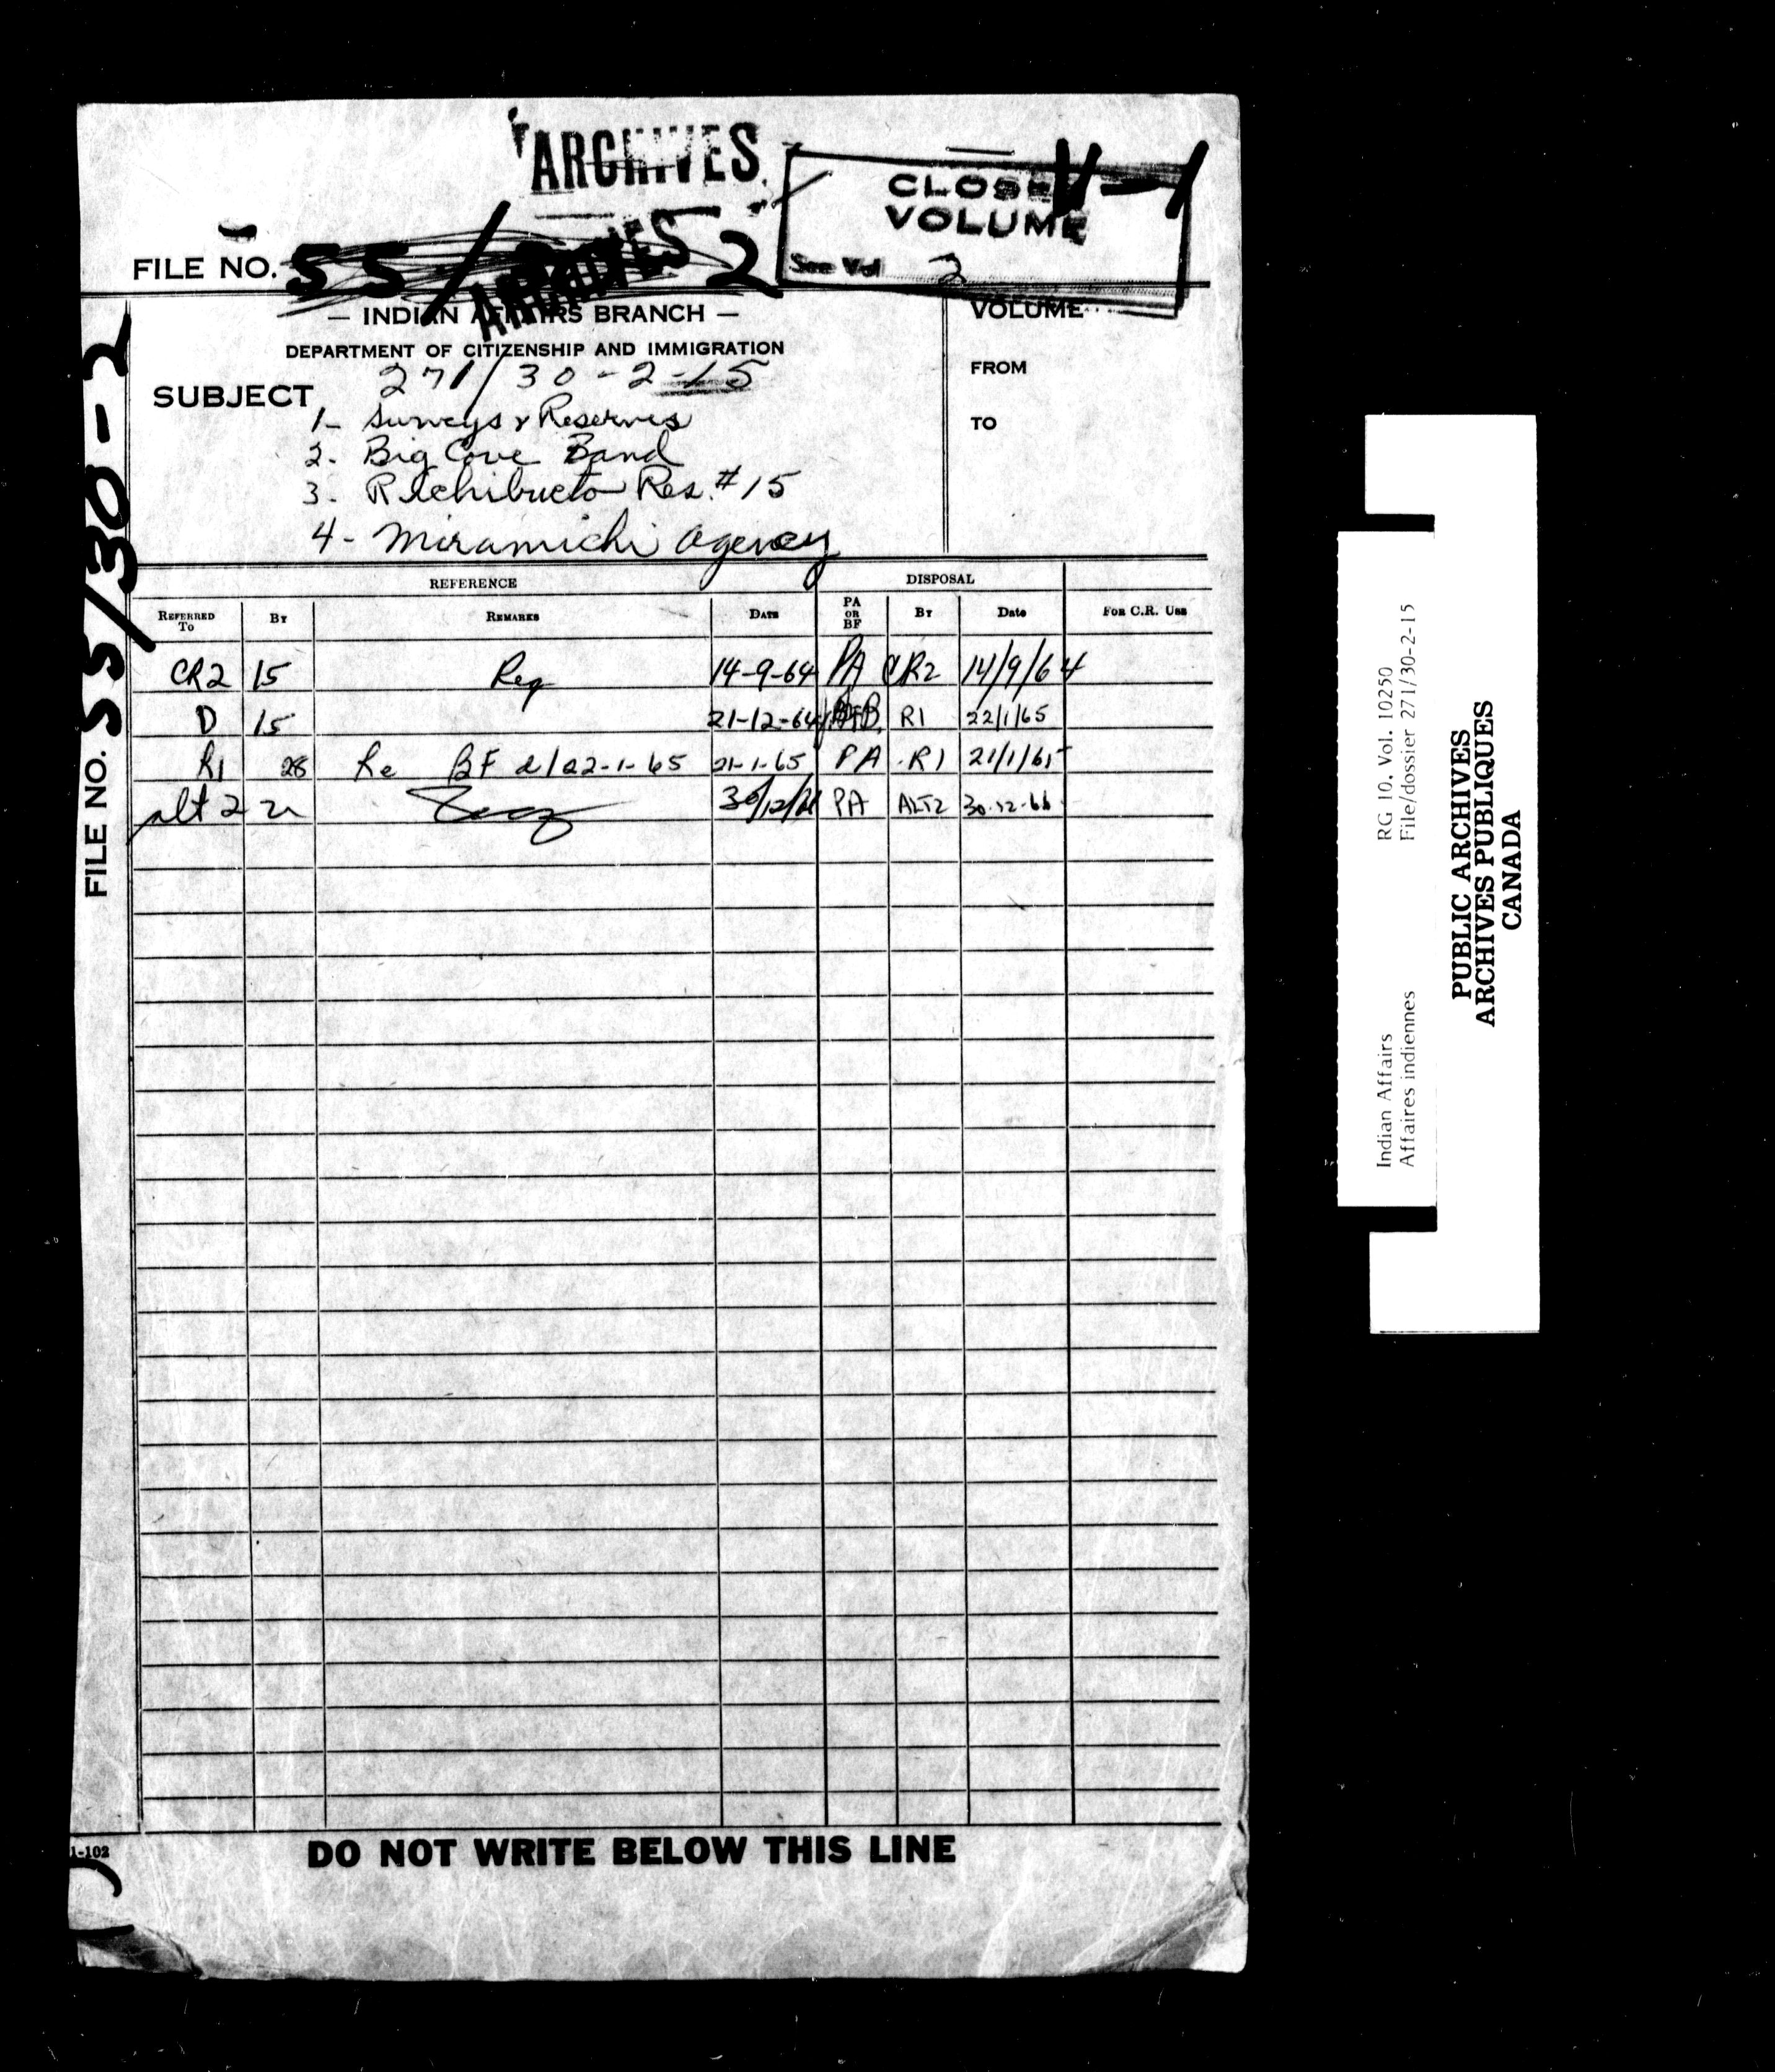 ARCHIVES
V-1
CLOSED
VOLUME
See Vol 2
FILE NO. 55/30-2
ARCHIVES
— INDIAN AFFAIRS BRANCH —
DEPARTMENT OF CITIZENSHIP AND IMMIGRATION
VOLUME
FROM
TO
271/30-2-15
SUBJECT
1- Surveys & Reserves
2. Big Cove Band
3. Richibucto Res. #15
4- Miramichi Agency
REFERENCE DISPOSAL
REFERRED TO BY REMARKS DATE PA OR BF BY Date FOR C.R. USE
CR2 15 Req 14-9-64 PA CR2 14/9/64
D 15 21-12-64 R1 22/1/65
R1 28 Re BF d/22-1-65 21-1-65 PA R1 21/1/65
alt 2 30/12/66 PA ALT2 30-12-66
1-102
DO NOT WRITE BELOW THIS LINE
FILE NO. 55/30-2
Indian Affairs RG 10, Vol. 10250
Affaires indiennes File/dossier 271/30-2-15
PUBLIC ARCHIVES
ARCHIVES PUBLIQUES
CANADA